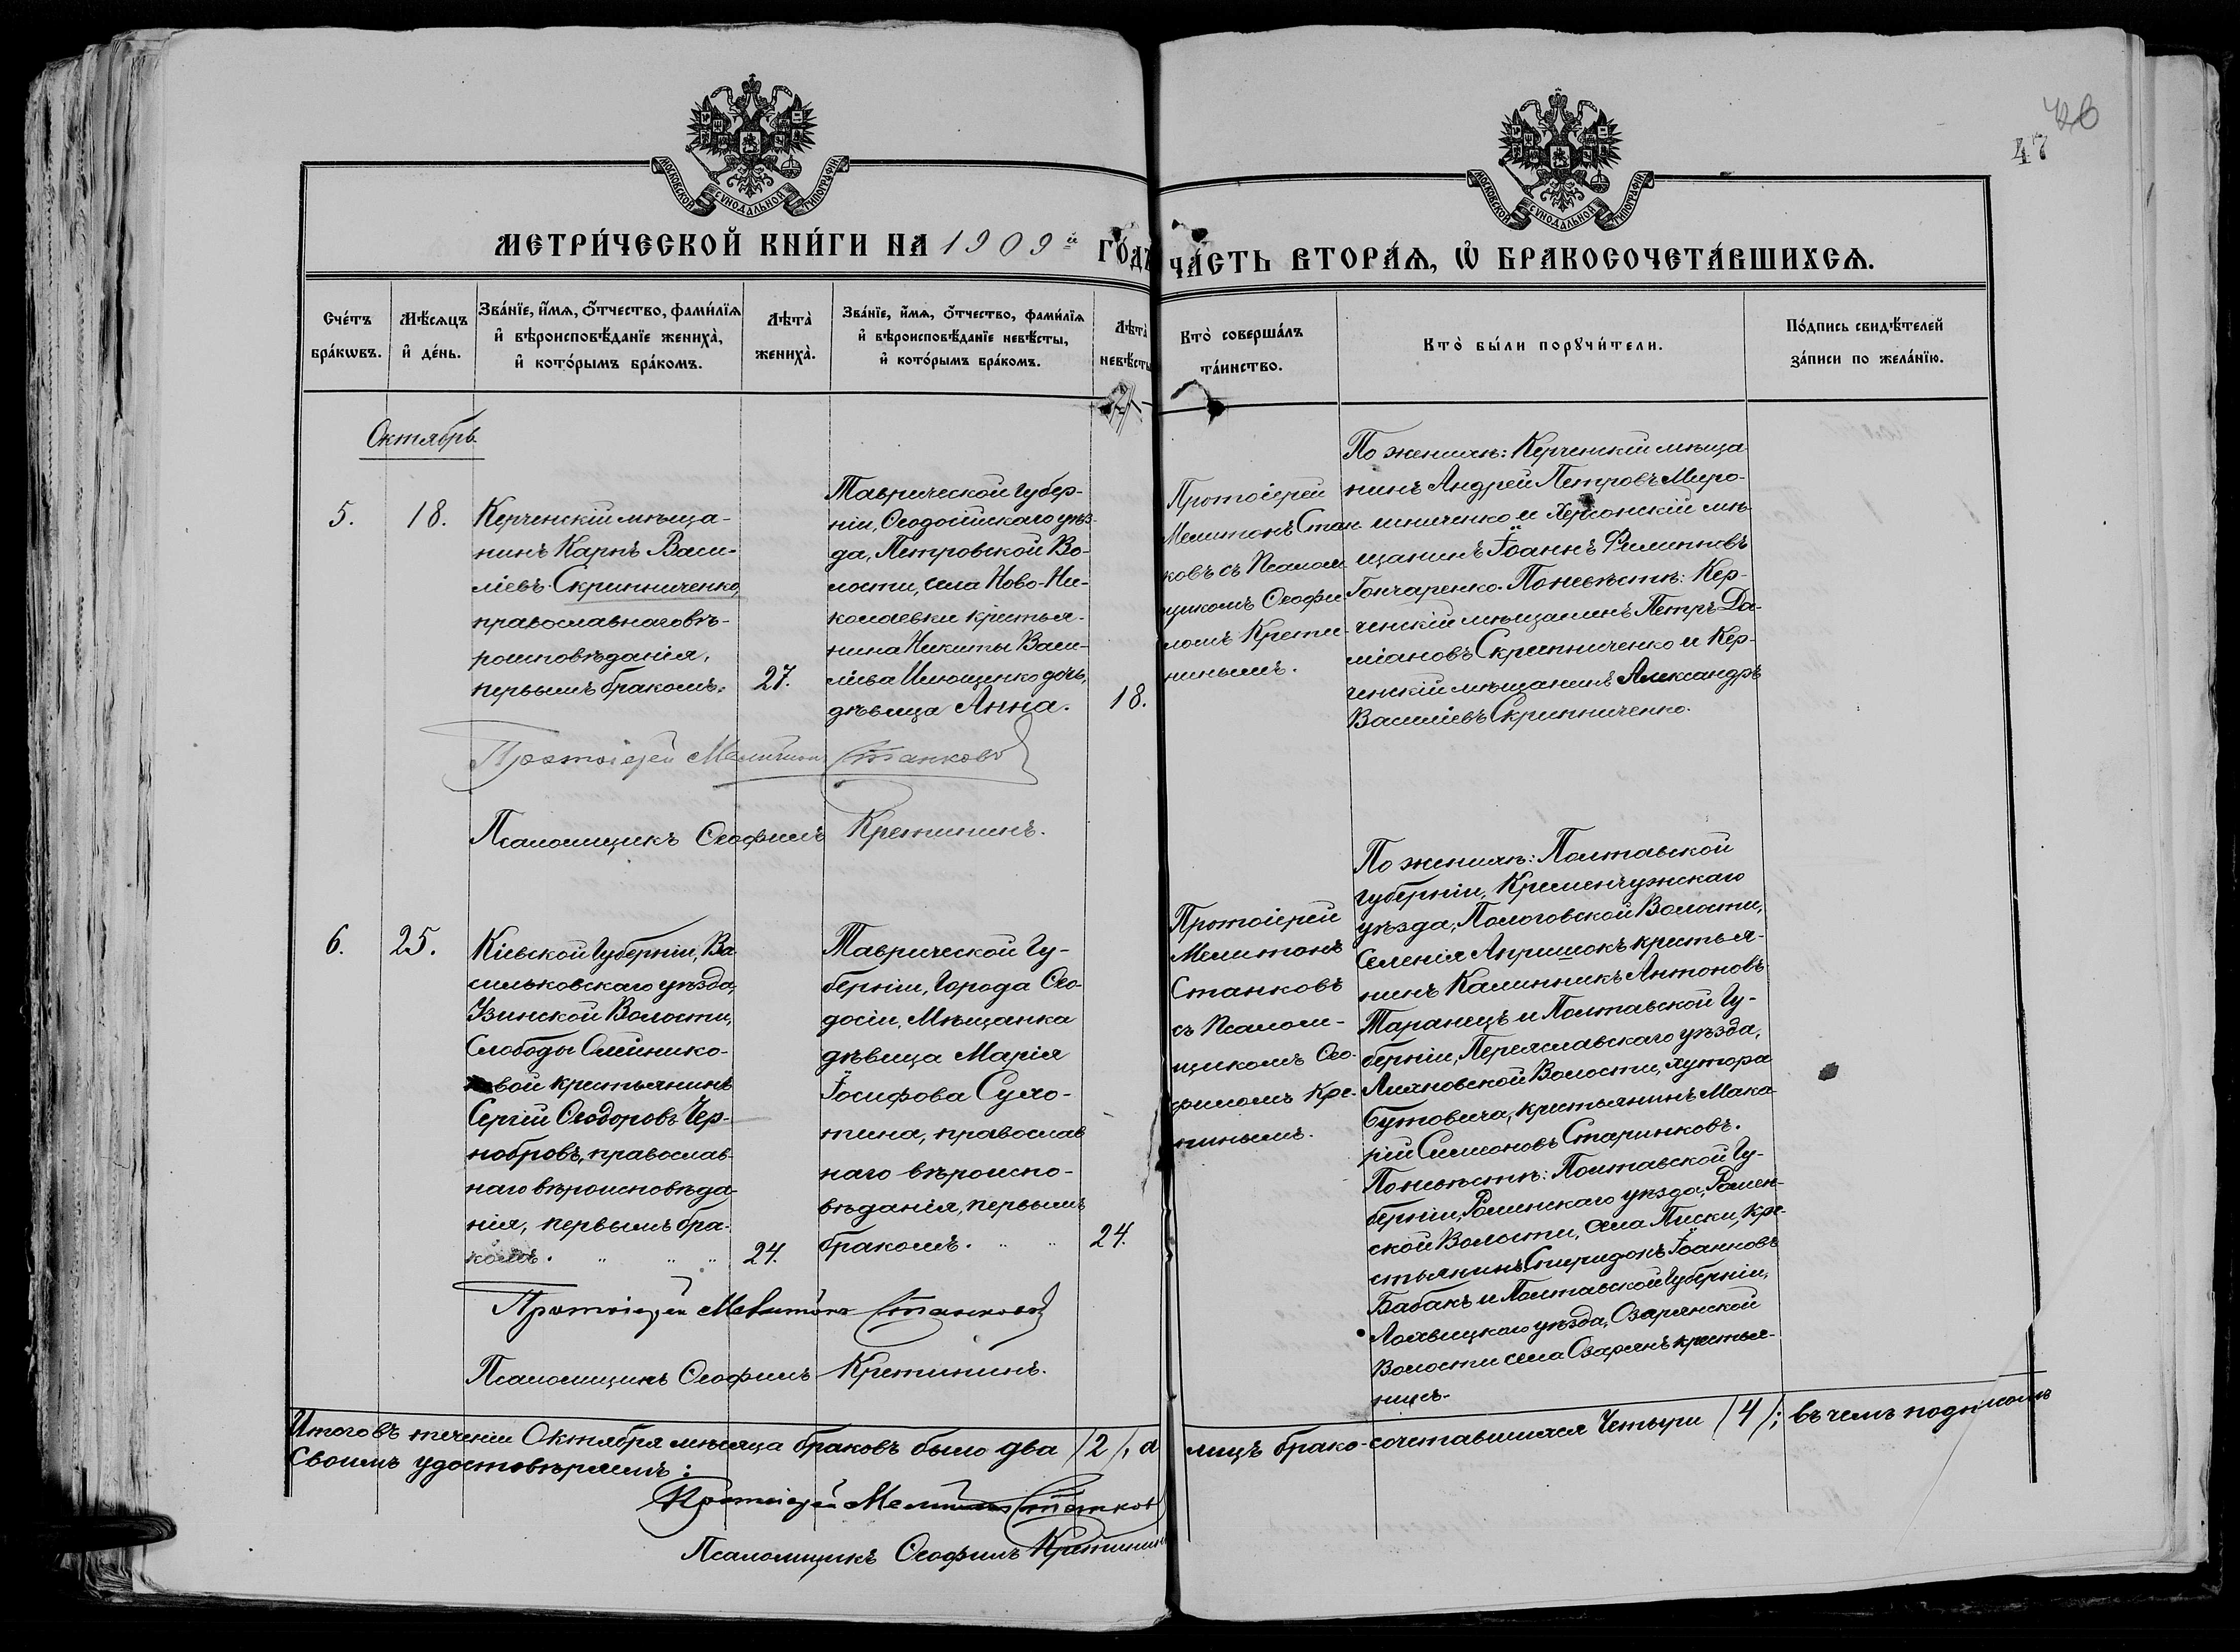 46
47
МОСКОВСКОЙ СѴНОДАЛЬНОЙ ТИПОГРАФІИ
МОСКОВСКОЙ СѴНОДАЛЬНОЙ ТИПОГРАФІИ
МЕТРИ́ЧЕСКОЙ КНИ́ГИ НА 1909й ГО́ДЪ
ЧА́СТЬ ВТОРА́Ѧ, Ѡ҆ БРАКОСОЧЕТА́ВШИХСѦ.
Сче́тъ
бра́кѡвъ.
Мѣ́сѧцъ
и҆ де́нь.
Зва́нїе, и҆́мѧ, о҆́тчество, фами́лїѧ
и҆ вѣроисповѣ́данїе жениха̀,
и҆ кото́рымъ бра́комъ.
Лѣта̀
жениха̀.
Зва́нїе, и҆́мѧ, о҆́тчество, фами́лїѧ
и҆ вѣроисповѣ́данїе невѣ́сты,
и҆ кото́рымъ бра́комъ.
Лѣта̀
невѣ́сты
Кто̀ соверша́лъ
та́инство.
Кто̀ бы́ли порꙋчи́тели.
По́дпись свидѣ́телей
за́писи по жела́нїю.
Октябрь
5.
18.
Керченскій мѣща-
нинъ Карпъ Васи-
ліевъ Скрипниченко,
православнаго вѣ-
роисповѣданія,
первымъ бракомъ.
27.
Таврической губер-
ніи, Ѳеодосійскаго уѣз-
да, Петровской Во-
лости, села Ново-Ни-
колаевки крестья-
нина Никиты Васи-
ліева Илющенко дочь,
дѣвица Анна.
18.
Протоіерей
Мелитонъ Стан-
ковъ съ Псалом-
щикомъ Ѳеофи-
ломъ Крети-
нинымъ.
По женихѣ: Керченскій мѣща-
нинъ Андрей Петровъ Миро-
шниченко и Херсонскій мѣ-
щанинъ Іоаннъ Филипповъ
Гончаренко. По невѣстѣ: Кер-
ченскій мѣщанинъ Петръ Да-
міановъ Скрипниченко и Кер-
ченскій мѣщанинъ Александръ
Василіевъ Скрипниченко.
Протоіерей Мелитонъ Станковъ
Псаломщикъ Ѳеофилъ Кретининъ.
6.
25.
Кіевской Губерніи, Ва-
сильковскаго уѣзда,
Узинской Волости,
Слободы Олейнико-
вой крестьянинъ
Сергій Ѳеодоровъ Чер-
нобровъ, православ-
наго вѣроисповѣда-
нія, первымъ бра-
комъ.
24.
Таврической Гу-
берніи, Города Ѳео-
досіи, Мѣщанка
дѣвица Марія
Іосифова Сухо-
тина, православ
наго вѣроиспо-
вѣданія, первымъ
бракомъ.
24.
Протоіерей
Мелитонъ
Станковъ
съ Псалом-
щикомъ Ѳео-
филомъ Кре-
тинымъ.
По женихѣ: Полтавской
губерніи, Кременчужскаго
уѣзда, Пологовской Волости,
Селенія Апришокъ крестья-
нинъ Калинникъ Антоновъ
Таранецъ и Полтавской Гу-
берніи, Переяславскаго уѣзда,
Волости, хутора
Бутовича, крестьянинъ Мака-
рій Симоновъ Старинковъ.
По невѣстѣ: Полтавской Гу-
берніи, Роменскаго уѣзда, Ромен-
ской Волости, села Пески, кре-
стьянинъ Спиридонъ Іоанновъ
Бабакъ и Полтавской Губерніи,
Лохвицкаго уѣзда, Озарянской
Волости села Озарянъ крестья-
нинъ.
Протоіерей Мелитонъ Станковъ
Псаломщикъ Ѳеофилъ Кретининъ.
Итого въ теченіи Октября мѣсяца браковъ было два /2/, а лицъ брако-сочетавшихся Четыри /4/; въ чемъ подписомъ
Своимъ удостовѣряемъ:
Протоіерей Мелитонъ Станковъ
Псаломщикъ Ѳеофилъ Кретининъ